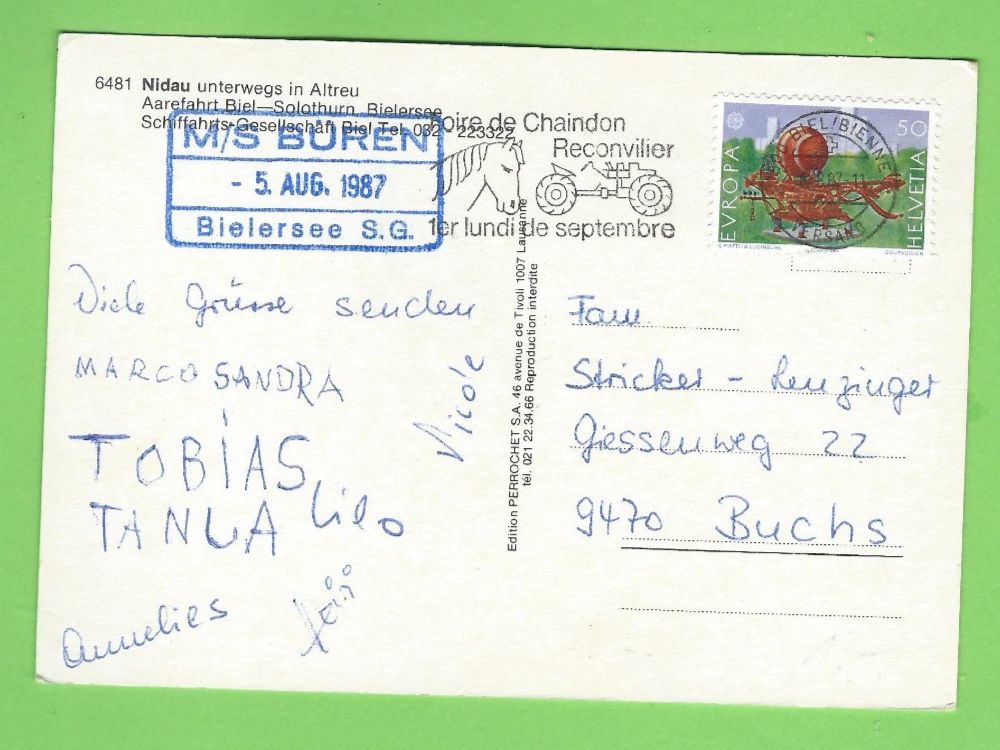 6481 Nidau unterwegs in Altreu
Aarefahrt Biel—Solothurn, Bielersee
Schiffahrts-Gesellschaft Biel Tel. 032 223322
M/S BÜREN
- 5. AUG. 1987
Bielersee S.G.
Foire de Chaindon
Reconvilier
1er lundi de septembre
BIEL/BIENNE
VERSAND
EUROPA
50
HELVETIA
COURVOISIER
Viele Grüsse senden
MARCO SANDRA
Nicole
TOBIAS
TANJA Lilo
Annelies
Edition PERROCHET S.A. 46 avenue de Tivoli 1007 Lausanne
tél. 021 22.34.66 Reproduction interdite
Fam.
Stricker - Lenzinger
Giessenweg 22
9470 Buchs